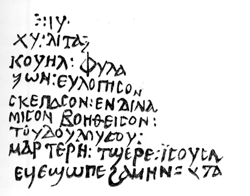 ΙΥ
ΧΥ: ΛΙΤΑ
ΚΟΥΗΛ: ΦΥΛΑ
ΖΩΝ: ΕΥΛΟΓΗΣΟΝ
ΣΚΕΠΑΣΟΝ: ΕΝΔΙΝΑ
ΜΙΣΟΝ ΒΟΗΘΕΙΣΟΝ:
ΤΟΥΔΟΥΛΜΥΣΟΥ:
ΜΑΡΤΕΡΗ: ΤϢΕΡΕ: ΙΣΟΥΣΙ
ΕϤΕϢΩΠΕ ϨΑΜΗΝ = ΤΑ